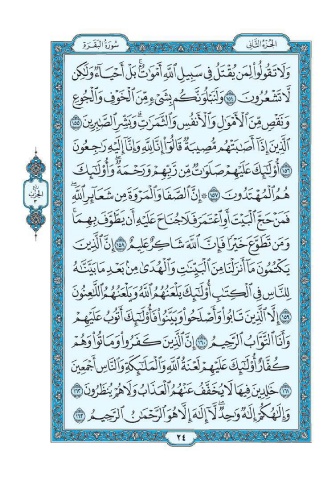 الجزء الثاني
سورة البقرة
وَلَا تَقُولُوا۟ لِمَن يُقْتَلُ فِى سَبِيلِ ٱللَّهِ أَمْوَٰتٌۢ ۚ بَلْ أَحْيَآءٌ وَلَٰكِن
لَّا تَشْعُرُونَ ١٥٤ وَلَنَبْلُوَنَّكُم بِشَىْءٍ مِّنَ ٱلْخَوْفِ وَٱلْجُوعِ
وَنَقْصٍ مِّنَ ٱلْأَمْوَٰلِ وَٱلْأَنفُسِ وَٱلثَّمَرَٰتِ ۗ وَبَشِّرِ ٱلصَّٰبِرِينَ ١٥٥
ٱلَّذِينَ إِذَآ أَصَٰبَتْهُم مُّصِيبَةٌ قَالُوٓا۟ إِنَّا لِلَّهِ وَإِنَّآ إِلَيْهِ رَٰجِعُونَ
١٥٦ أُو۟لَٰٓئِكَ عَلَيْهِمْ صَلَوَٰتٌ مِّن رَّبِّهِمْ وَرَحْمَةٌ ۖ وَأُو۟لَٰٓئِكَ
هُمُ ٱلْمُهْتَدُونَ ١٥٧ ۞ إِنَّ ٱلصَّفَا وَٱلْمَرْوَةَ مِن شَعَآئِرِ ٱللَّهِ ۖ
فَمَنْ حَجَّ ٱلْبَيْتَ أَوِ ٱعْتَمَرَ فَلَا جُنَاحَ عَلَيْهِ أَن يَطَّوَّفَ بِهِمَا ۚ
وَمَن تَطَوَّعَ خَيْرًا فَإِنَّ ٱللَّهَ شَاكِرٌ عَلِيمٌ ١٥٨ إِنَّ ٱلَّذِينَ
يَكْتُمُونَ مَآ أَنزَلْنَا مِنَ ٱلْبَيِّنَٰتِ وَٱلْهُدَىٰ مِنۢ بَعْدِ مَا بَيَّنَّٰهُ
لِلنَّاسِ فِى ٱلْكِتَٰبِ ۙ أُو۟لَٰٓئِكَ يَلْعَنُهُمُ ٱللَّهُ وَيَلْعَنُهُمُ ٱللَّٰعِنُونَ
١٥٩ إِلَّا ٱلَّذِينَ تَابُوا۟ وَأَصْلَحُوا۟ وَبَيَّنُوا۟ فَأُو۟لَٰٓئِكَ أَتُوبُ عَلَيْهِمْ ۚ
وَأَنَا ٱلتَّوَّابُ ٱلرَّحِيمُ ١٦٠ إِنَّ ٱلَّذِينَ كَفَرُوا۟ وَمَاتُوا۟ وَهُمْ
كُفَّارٌ أُو۟لَٰٓئِكَ عَلَيْهِمْ لَعْنَةُ ٱللَّهِ وَٱلْمَلَٰٓئِكَةِ وَٱلنَّاسِ أَجْمَعِينَ
١٦١ خَٰلِدِينَ فِيهَا ۖ لَا يُخَفَّفُ عَنْهُمُ ٱلْعَذَابُ وَلَا هُمْ يُنظَرُونَ ١٦٢
وَإِلَٰهُكُمْ إِلَٰهٌ وَٰحِدٌ ۖ لَّآ إِلَٰهَ إِلَّا هُوَ ٱلرَّحْمَٰنُ ٱلرَّحِيمُ ١٦٣
٢٤